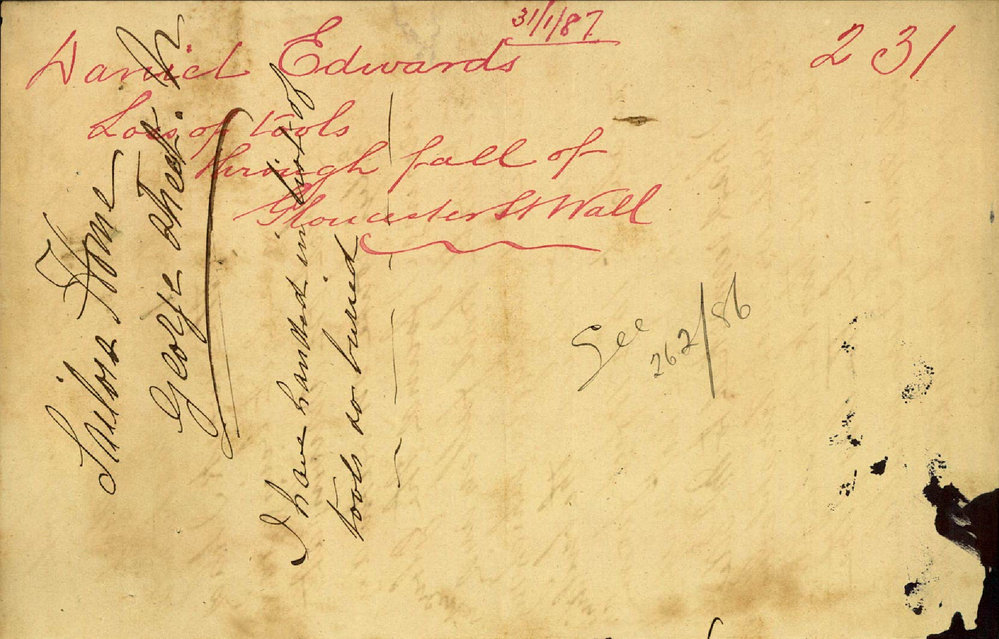 31/1/87
Daniel Edwards
231
Loss of tools
through fall of
Gloucester St Wall
Sailors Home
George Street. N
I have handed in list of
tools so buried
See
262/86